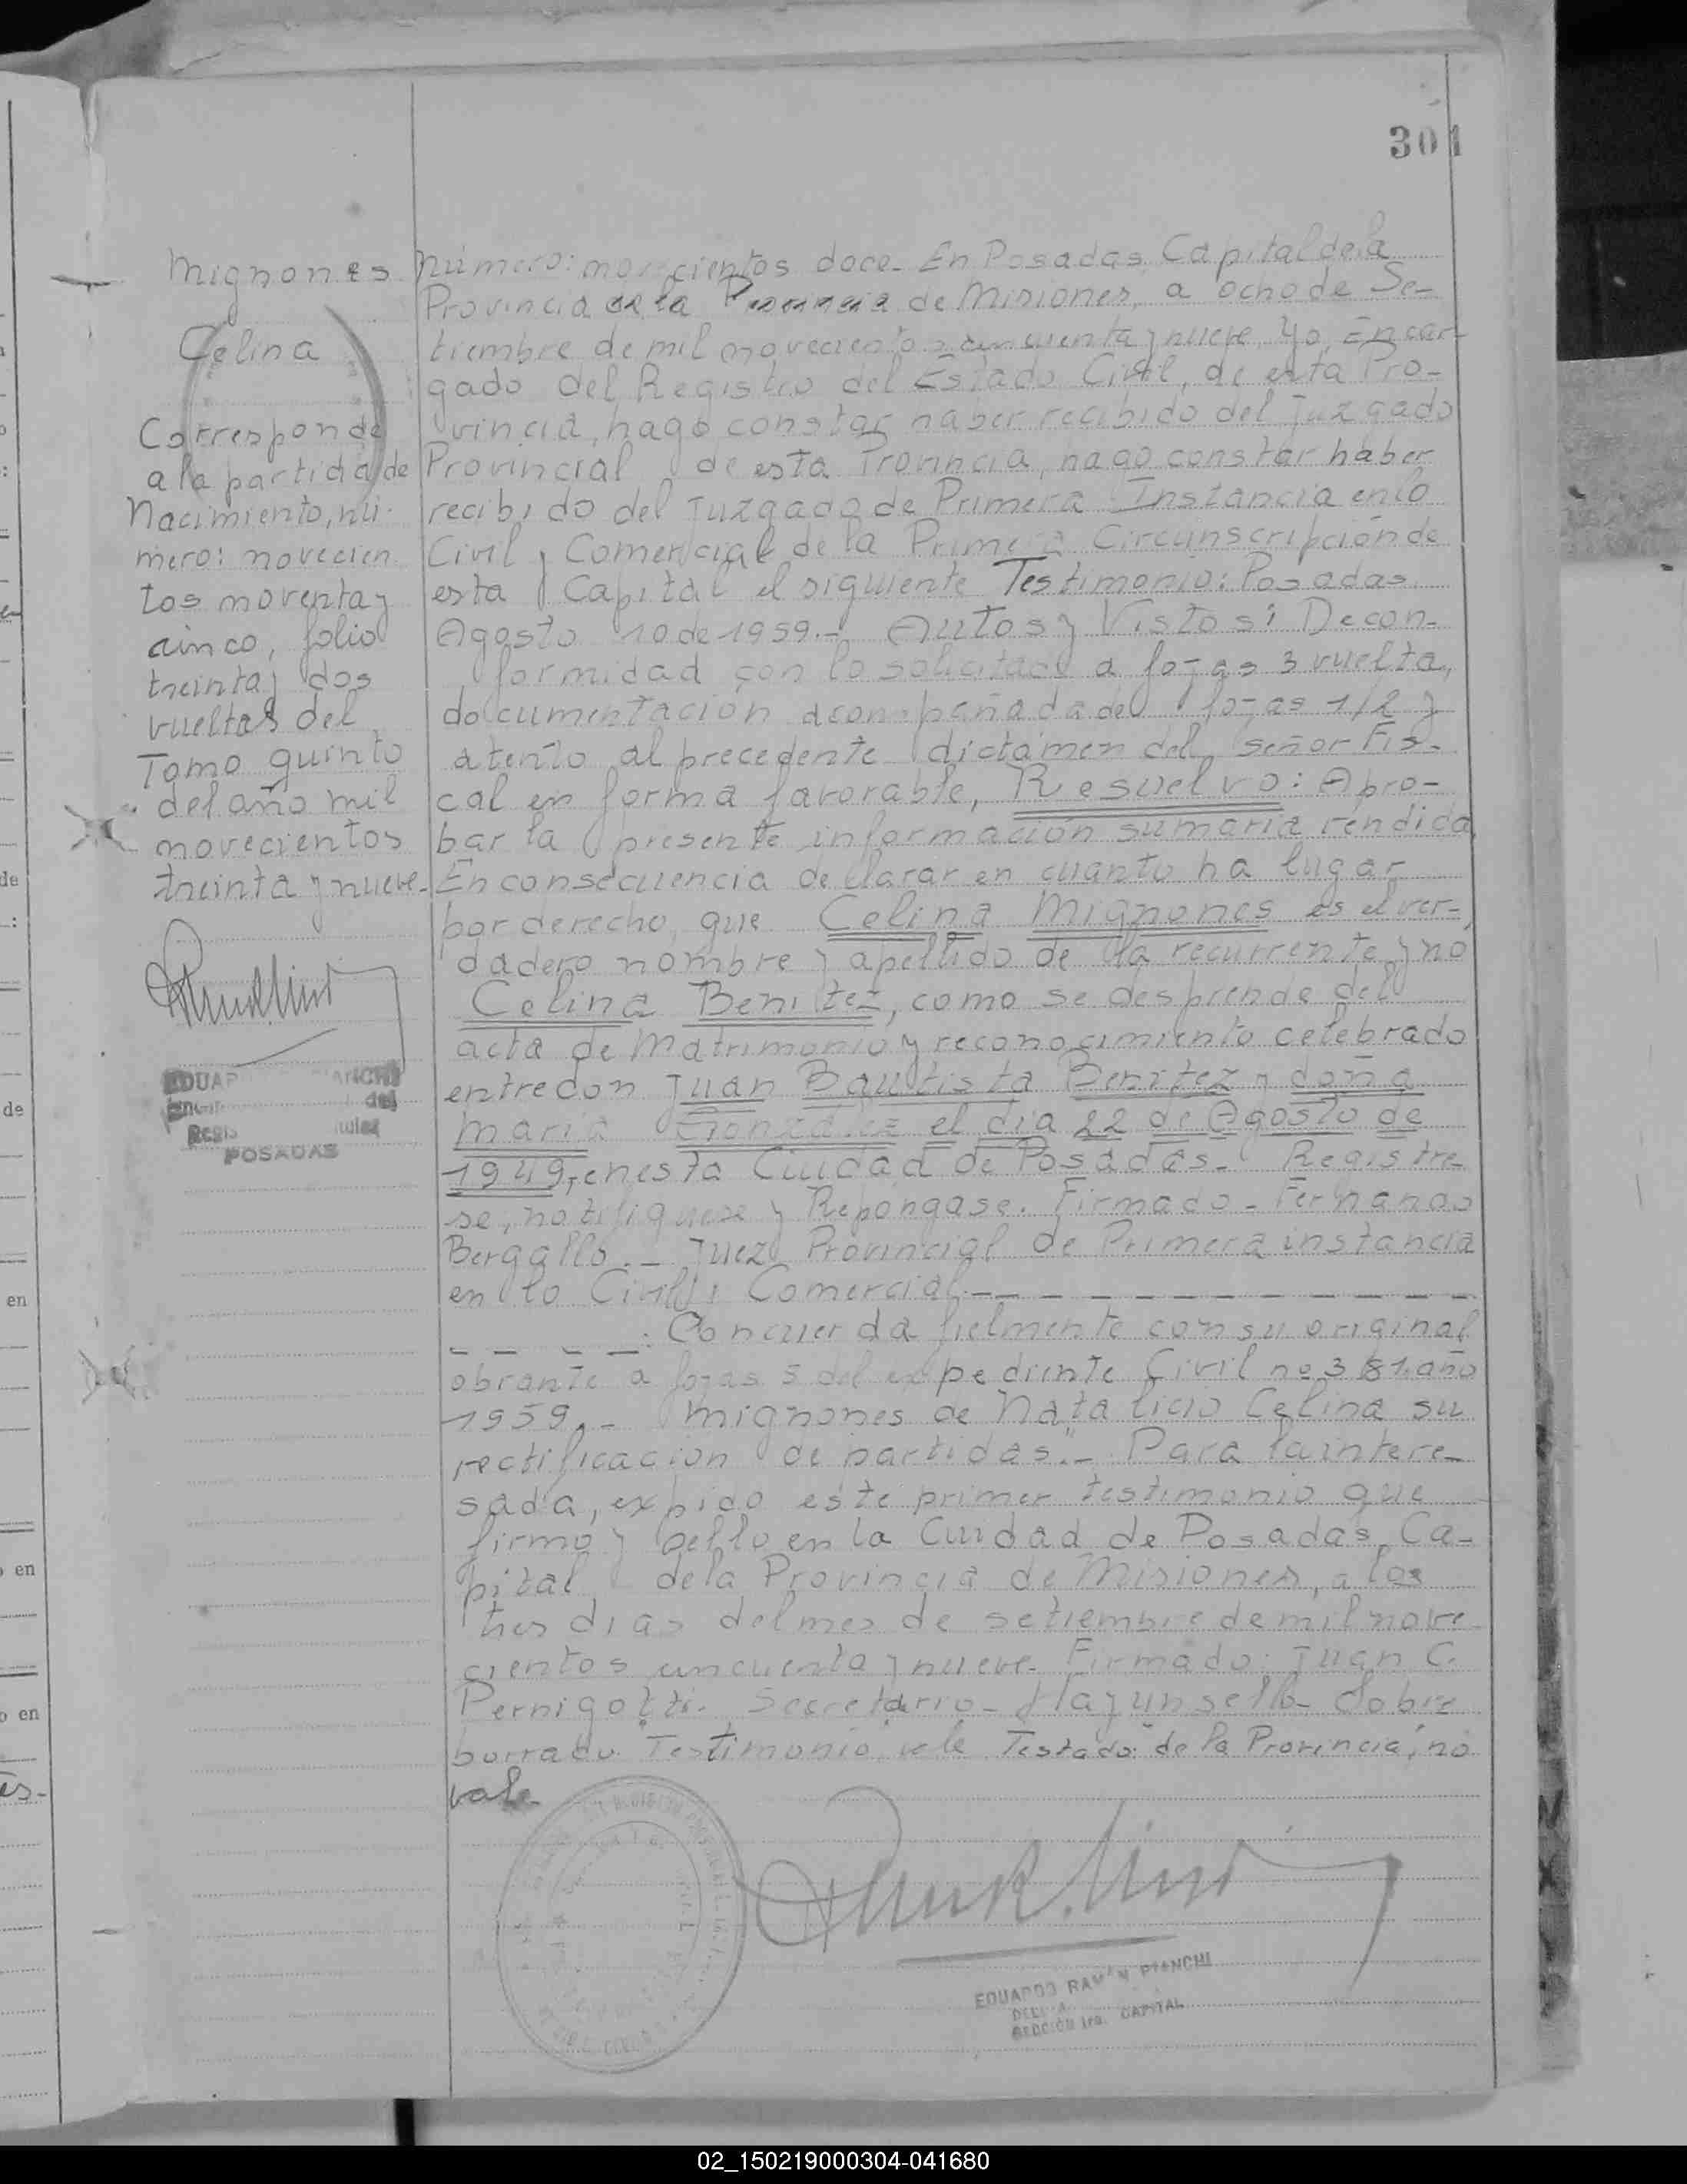 301
Mignones
Celina
Corresponde
a la partida de
Nacimiento, nú-
mero: novecien
tos noventa y
cinco, folio
treinta y dos
vueltas del
Tomo quinto
del año mil
novecientos
treinta y nueve.-
POSADAS
Número: novecientos doce. En Posadas Capital de la
Provincia de la Provincia de Misiones, a ocho de Se-
tiembre de mil novecientos cincuenta y nueve, Yo, Encar-
gado del Registro del Estado Civil, de esta Pro-
vincia, hago constar haber recibido del Juzgado
Provincial de esta Provincia, hago constar haber
recibido del Juzgado de Primera Instancia en lo
Civil y Comercial de la Primera Circunscripción de
esta Capital el siguiente Testimonio: Posadas
Agosto 10 de 1959.- Autos y Vistos: De con-
formidad con lo solicitado a fojas 3 vuelta,
documentación acompañada de fojas 1/2 y
atento al precedente dictamen del señor Fis-
cal en forma favorable, Resuelvo: Apro-
bar la presente información sumaria rendida,
En consecuencia decllarar en cuanto ha lugar
por derecho, que Celina Mignones es el ver-
dadero nombre y apellido de la recurrente y no
Celina Benitez, como se desprende del
acta de Matrimonio y reconocimiento celebrado
entre don Juan Bautista Benitez y doña
Maria Gonzalez el dia 22 de Agosto de
1949, en esta Ciudad de Posadas.- Registre
se, notifiquese y Repongase. Firmado - Fernando
Bergallo.- Juez Provincial de Primera instancia
en lo Civil y Comercial.- - - - - - - - - - -
- - - - : Concuerda fielmente con su original
obrante a fojas 5 del expediente Civil no 381 año
1959.- Mignones de Natalicio Celina su
rectificacion de partidas".- Para la intere-
sada, expido este primer testimonio que
firmo y sello en la Ciudad de Posadas, Ca-
pital de la Provincia de Misiones, a los
tres dias del mes de setiembre de mil nove-
cientos cincuenta y nueve. Firmado: Juan C.
Pernigotti. Secretario - Hay un sello - Sobre
borrado Testimonio, vale Testado: de la Provincia, no
vale
EDUARDO RAMÓN BIANCHI
SECCIÓN 1ra. CAPITAL
02_150219000304-041680